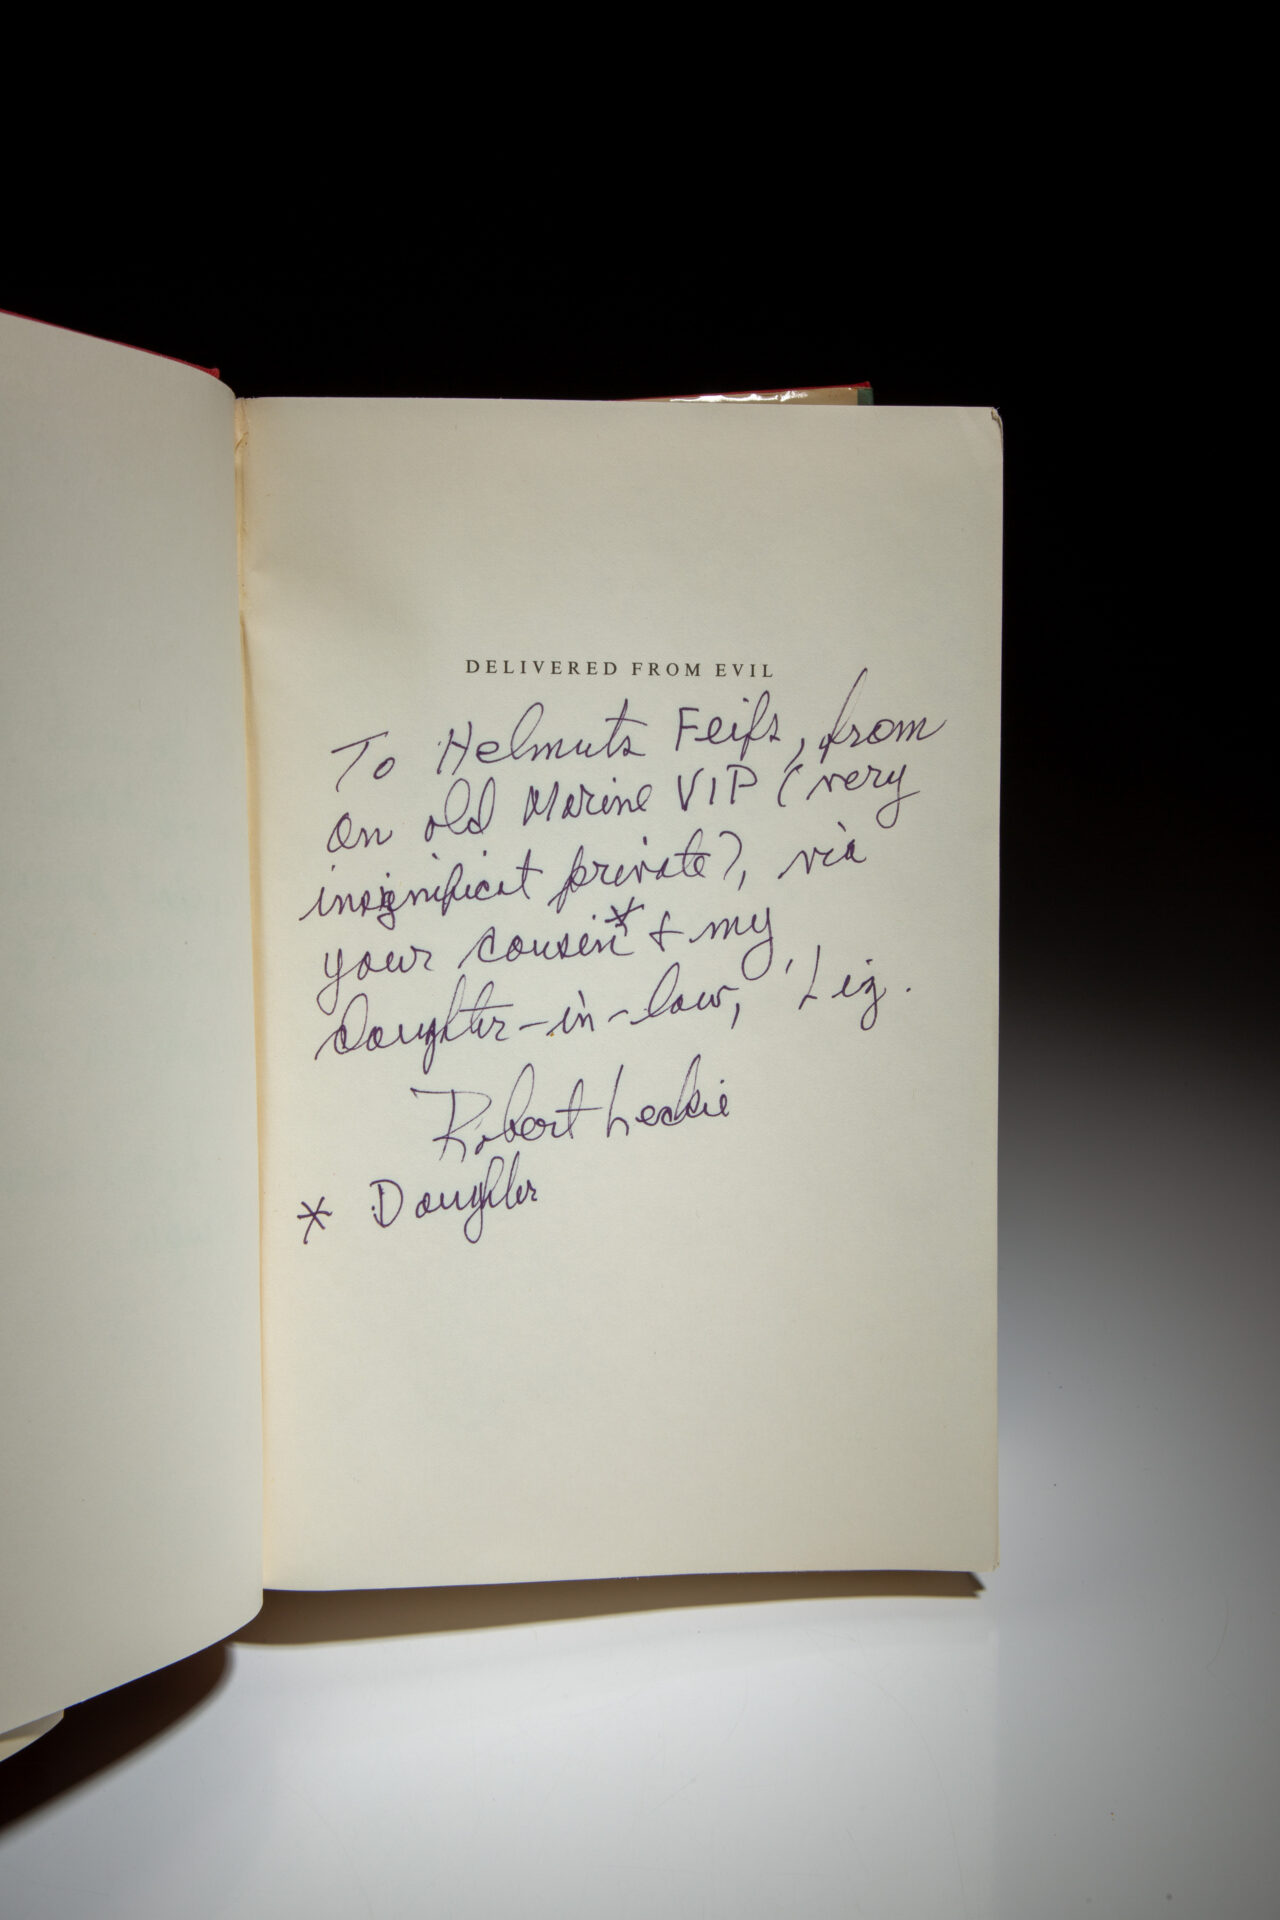 DELIVERED FROM EVIL
To Helmuts Feifs, from
an old Marine VIP (very
insignificat private), via
your cousin* & my
daughter-in-law, Liz.
Robert Leckie
* Daughter